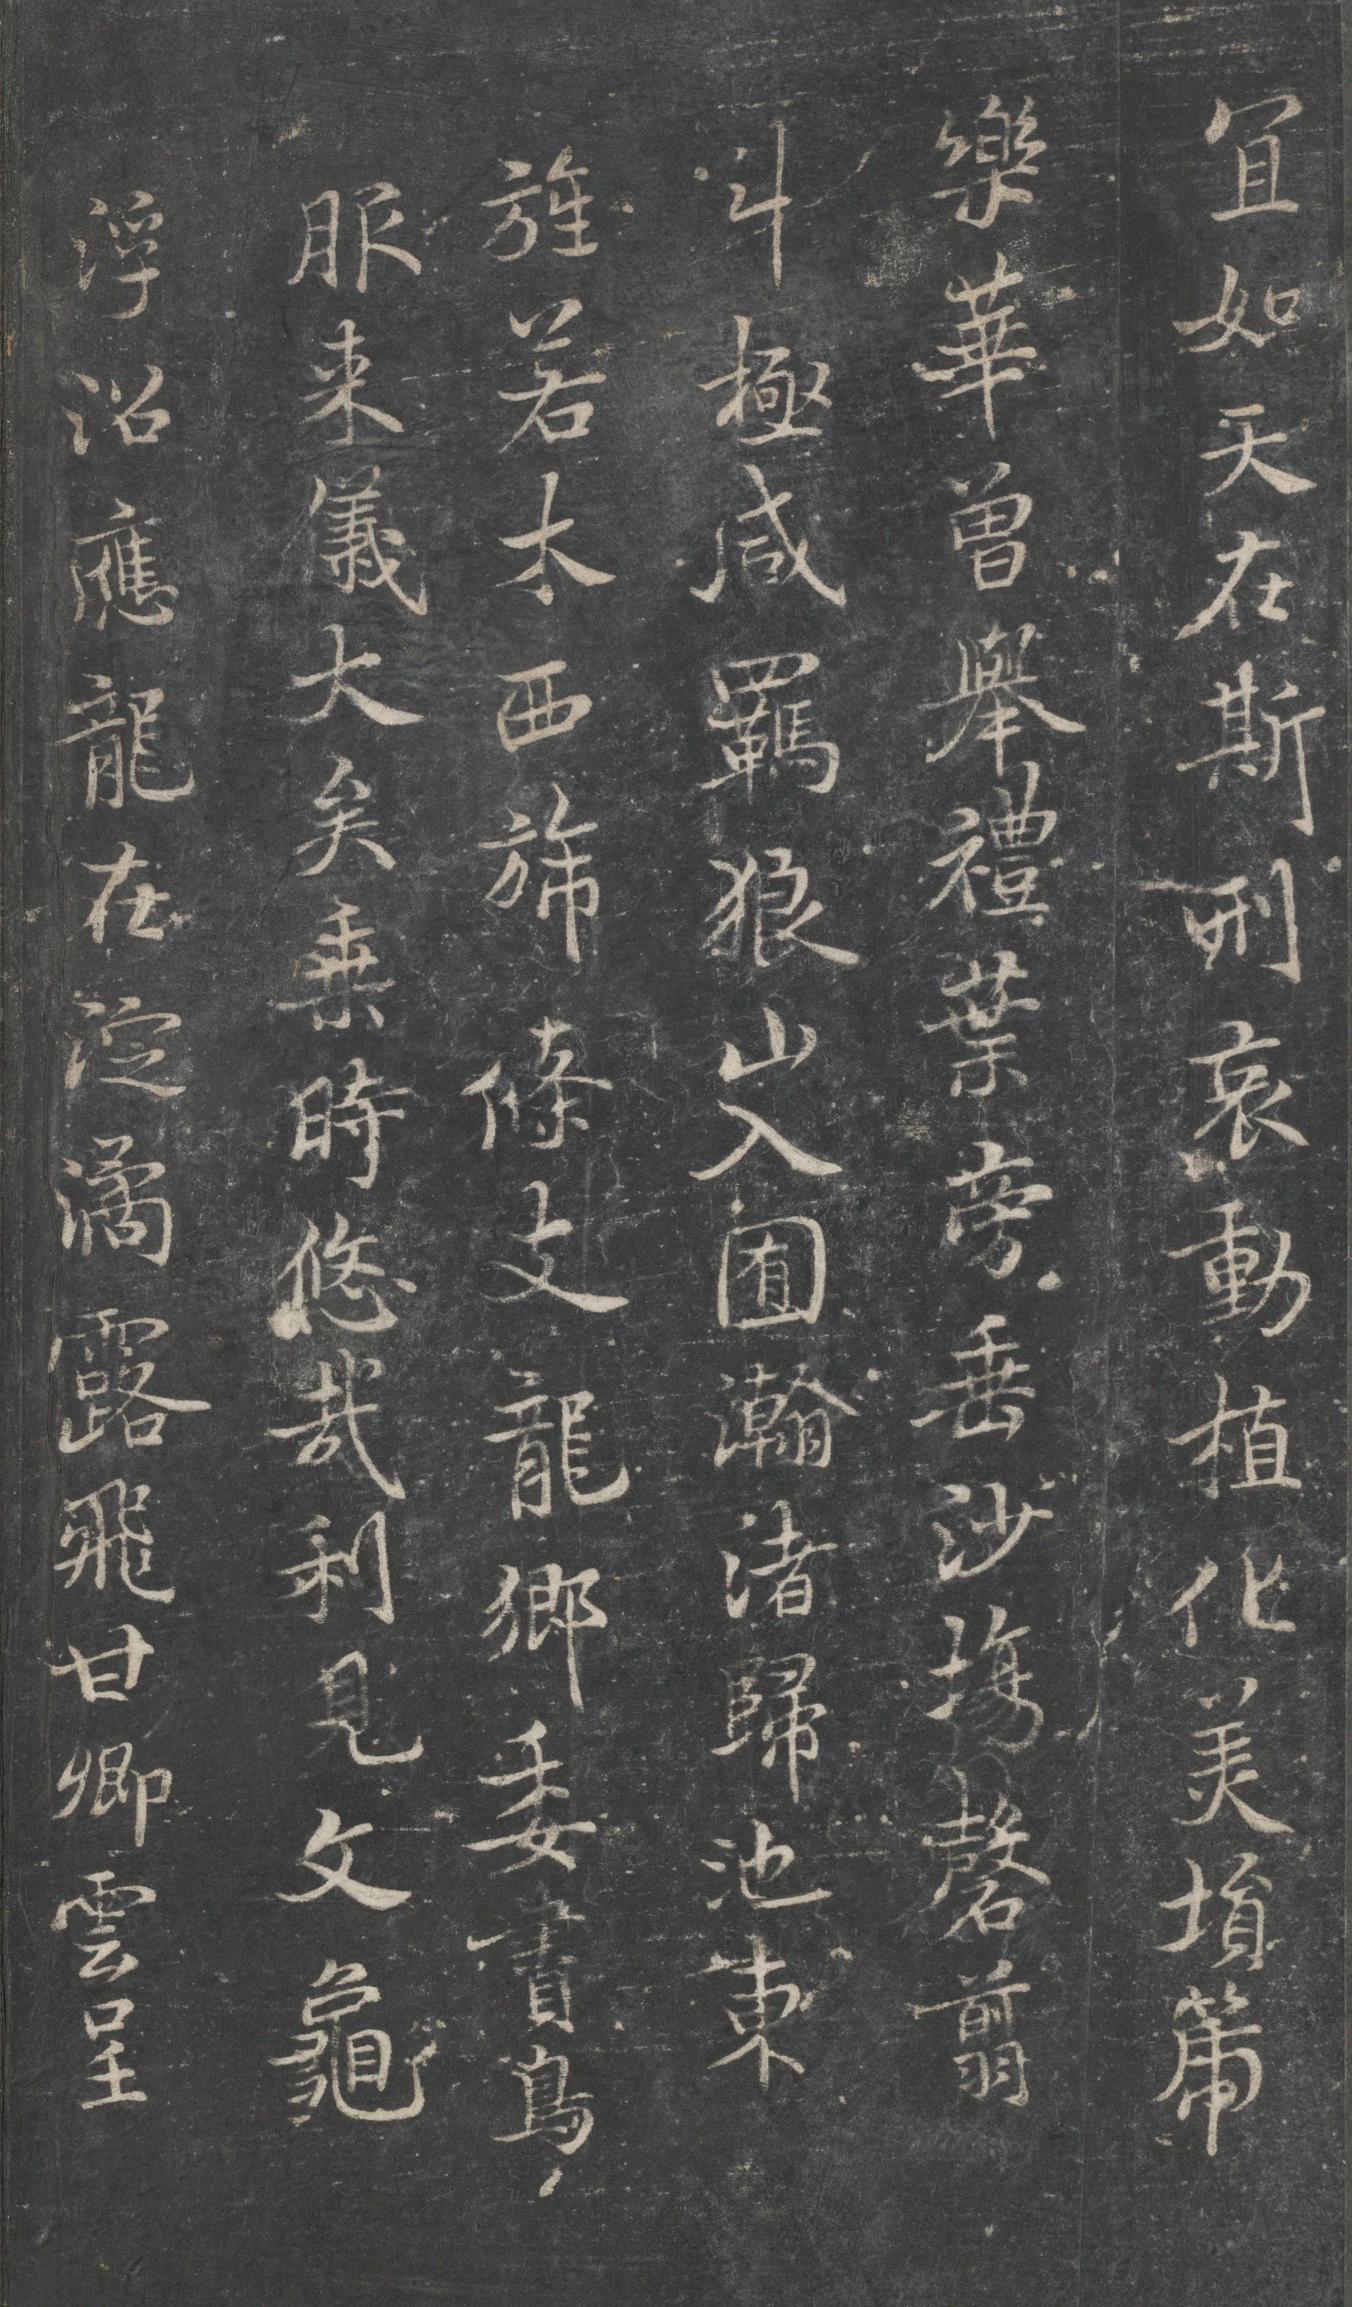 宜如天在斯刑哀動植化美塤箎
樂華曾舉禮葉旁垂沙場磬翦
斗極咸羈狼山入囿瀚渚歸池東
旌若木西旆條支龍鄉委賮鳥
服来儀大矣乗時悠哉利見文龜
浮沼應龍在淀滴露飛甘卿雲呈